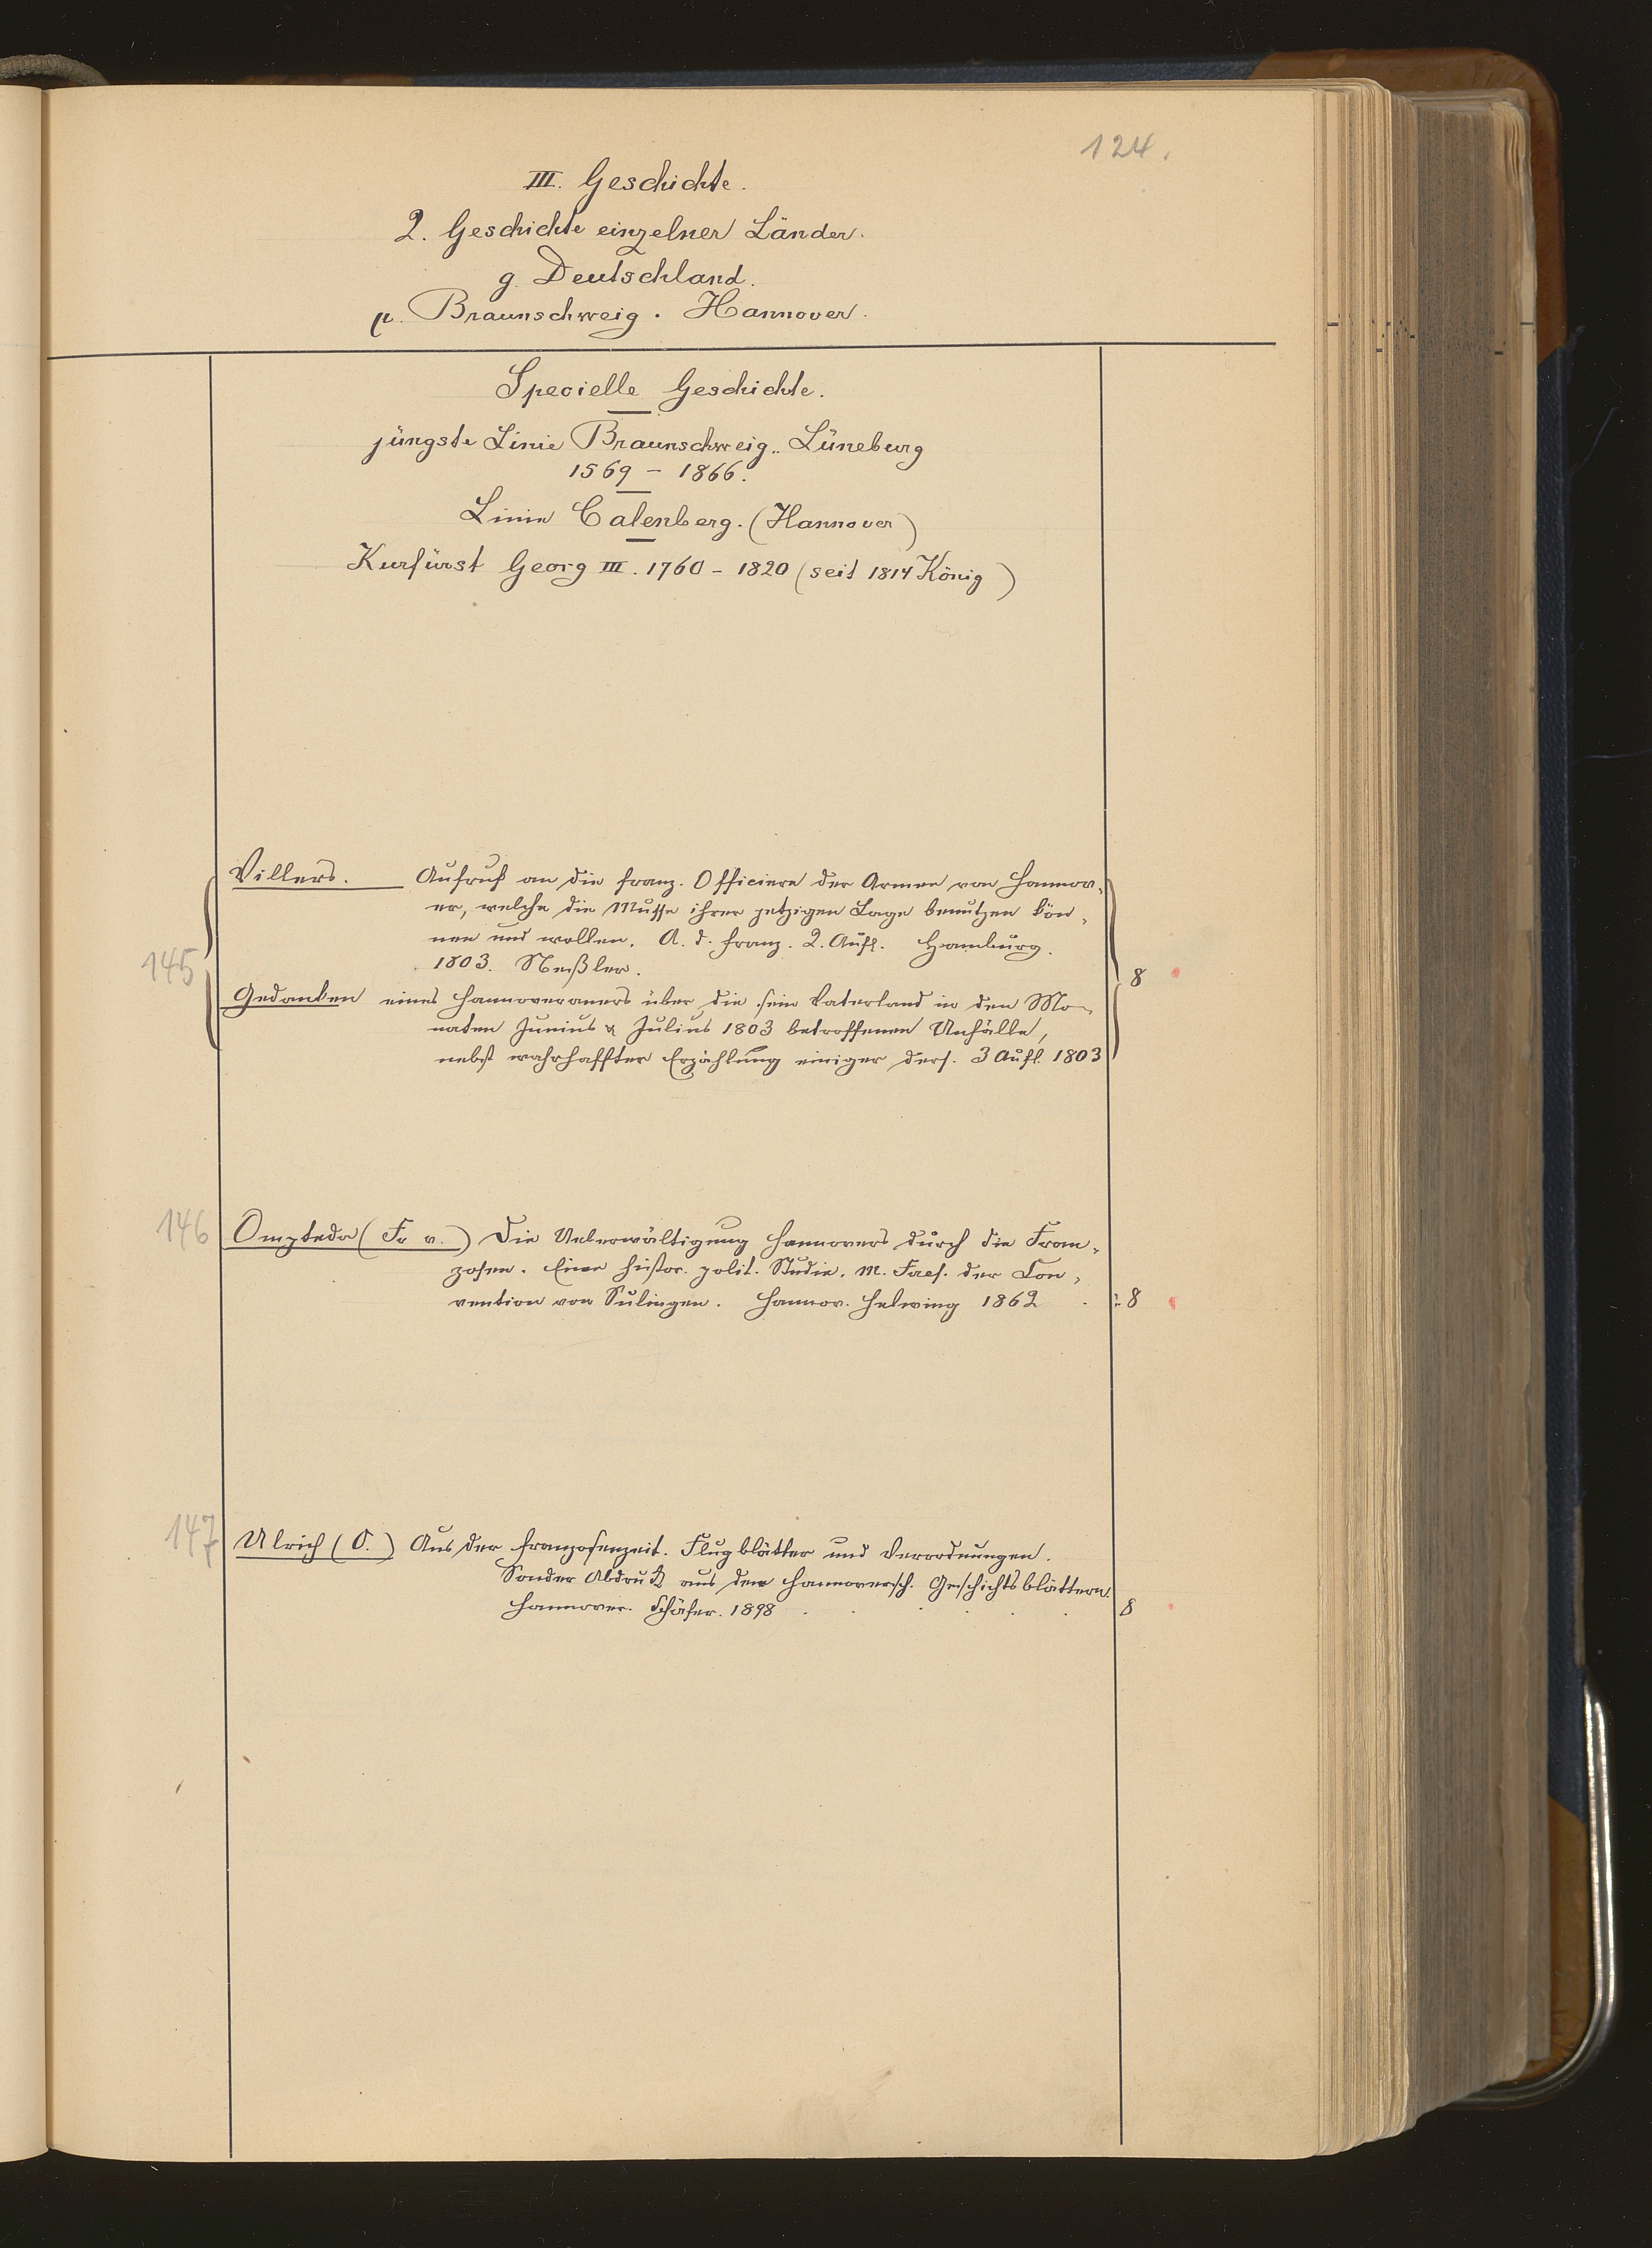 124.
III. Geschichte.
2. Geschichte einzelner Länder.
g. Deutschland.
μ. Braunschweig. Hannover.
Specielle Geschichte.
jüngste Linie Braunschweig-Lüneburg
1569 - 1866.
Linie Calenberg. (Hannover)
Kurfürst Georg III. 1760 - 1820 (seit 1814 König)
Villers. Aufruf an die franz. Officiere der Armee von Hannov-
er, welche die Musse ihrer jetzigen Lage benutzen kön-
nen und wollen. A. d. Franz. 2. Aufl. Hamburg.
1803.
145
8
Gedanken eines Hannoveraners über die sein Vaterland in den Mo-
naten Junius & Julius 1803 betroffenen Unfälle,
nebst wahrhaffter Erzählung einiger ders. 3 Aufl. 1803
146 Ompteda (Fr v.) Die Ueberwältigung Hannovers durch die Fran-
zosen. Eine histor. polit. Studie. M. Facs. der Con-
vention von Sulingen. Hannov. Helwing 1862 . : 8
147 Ulrich (O.) Aus der Franzosenzeit. Flugblätter und Verordnungen.
Sonder Abdruck aus den Hannoversch. Geschichtsblättern.
Hannover. Schäfer. 1898 . . . . . . 8